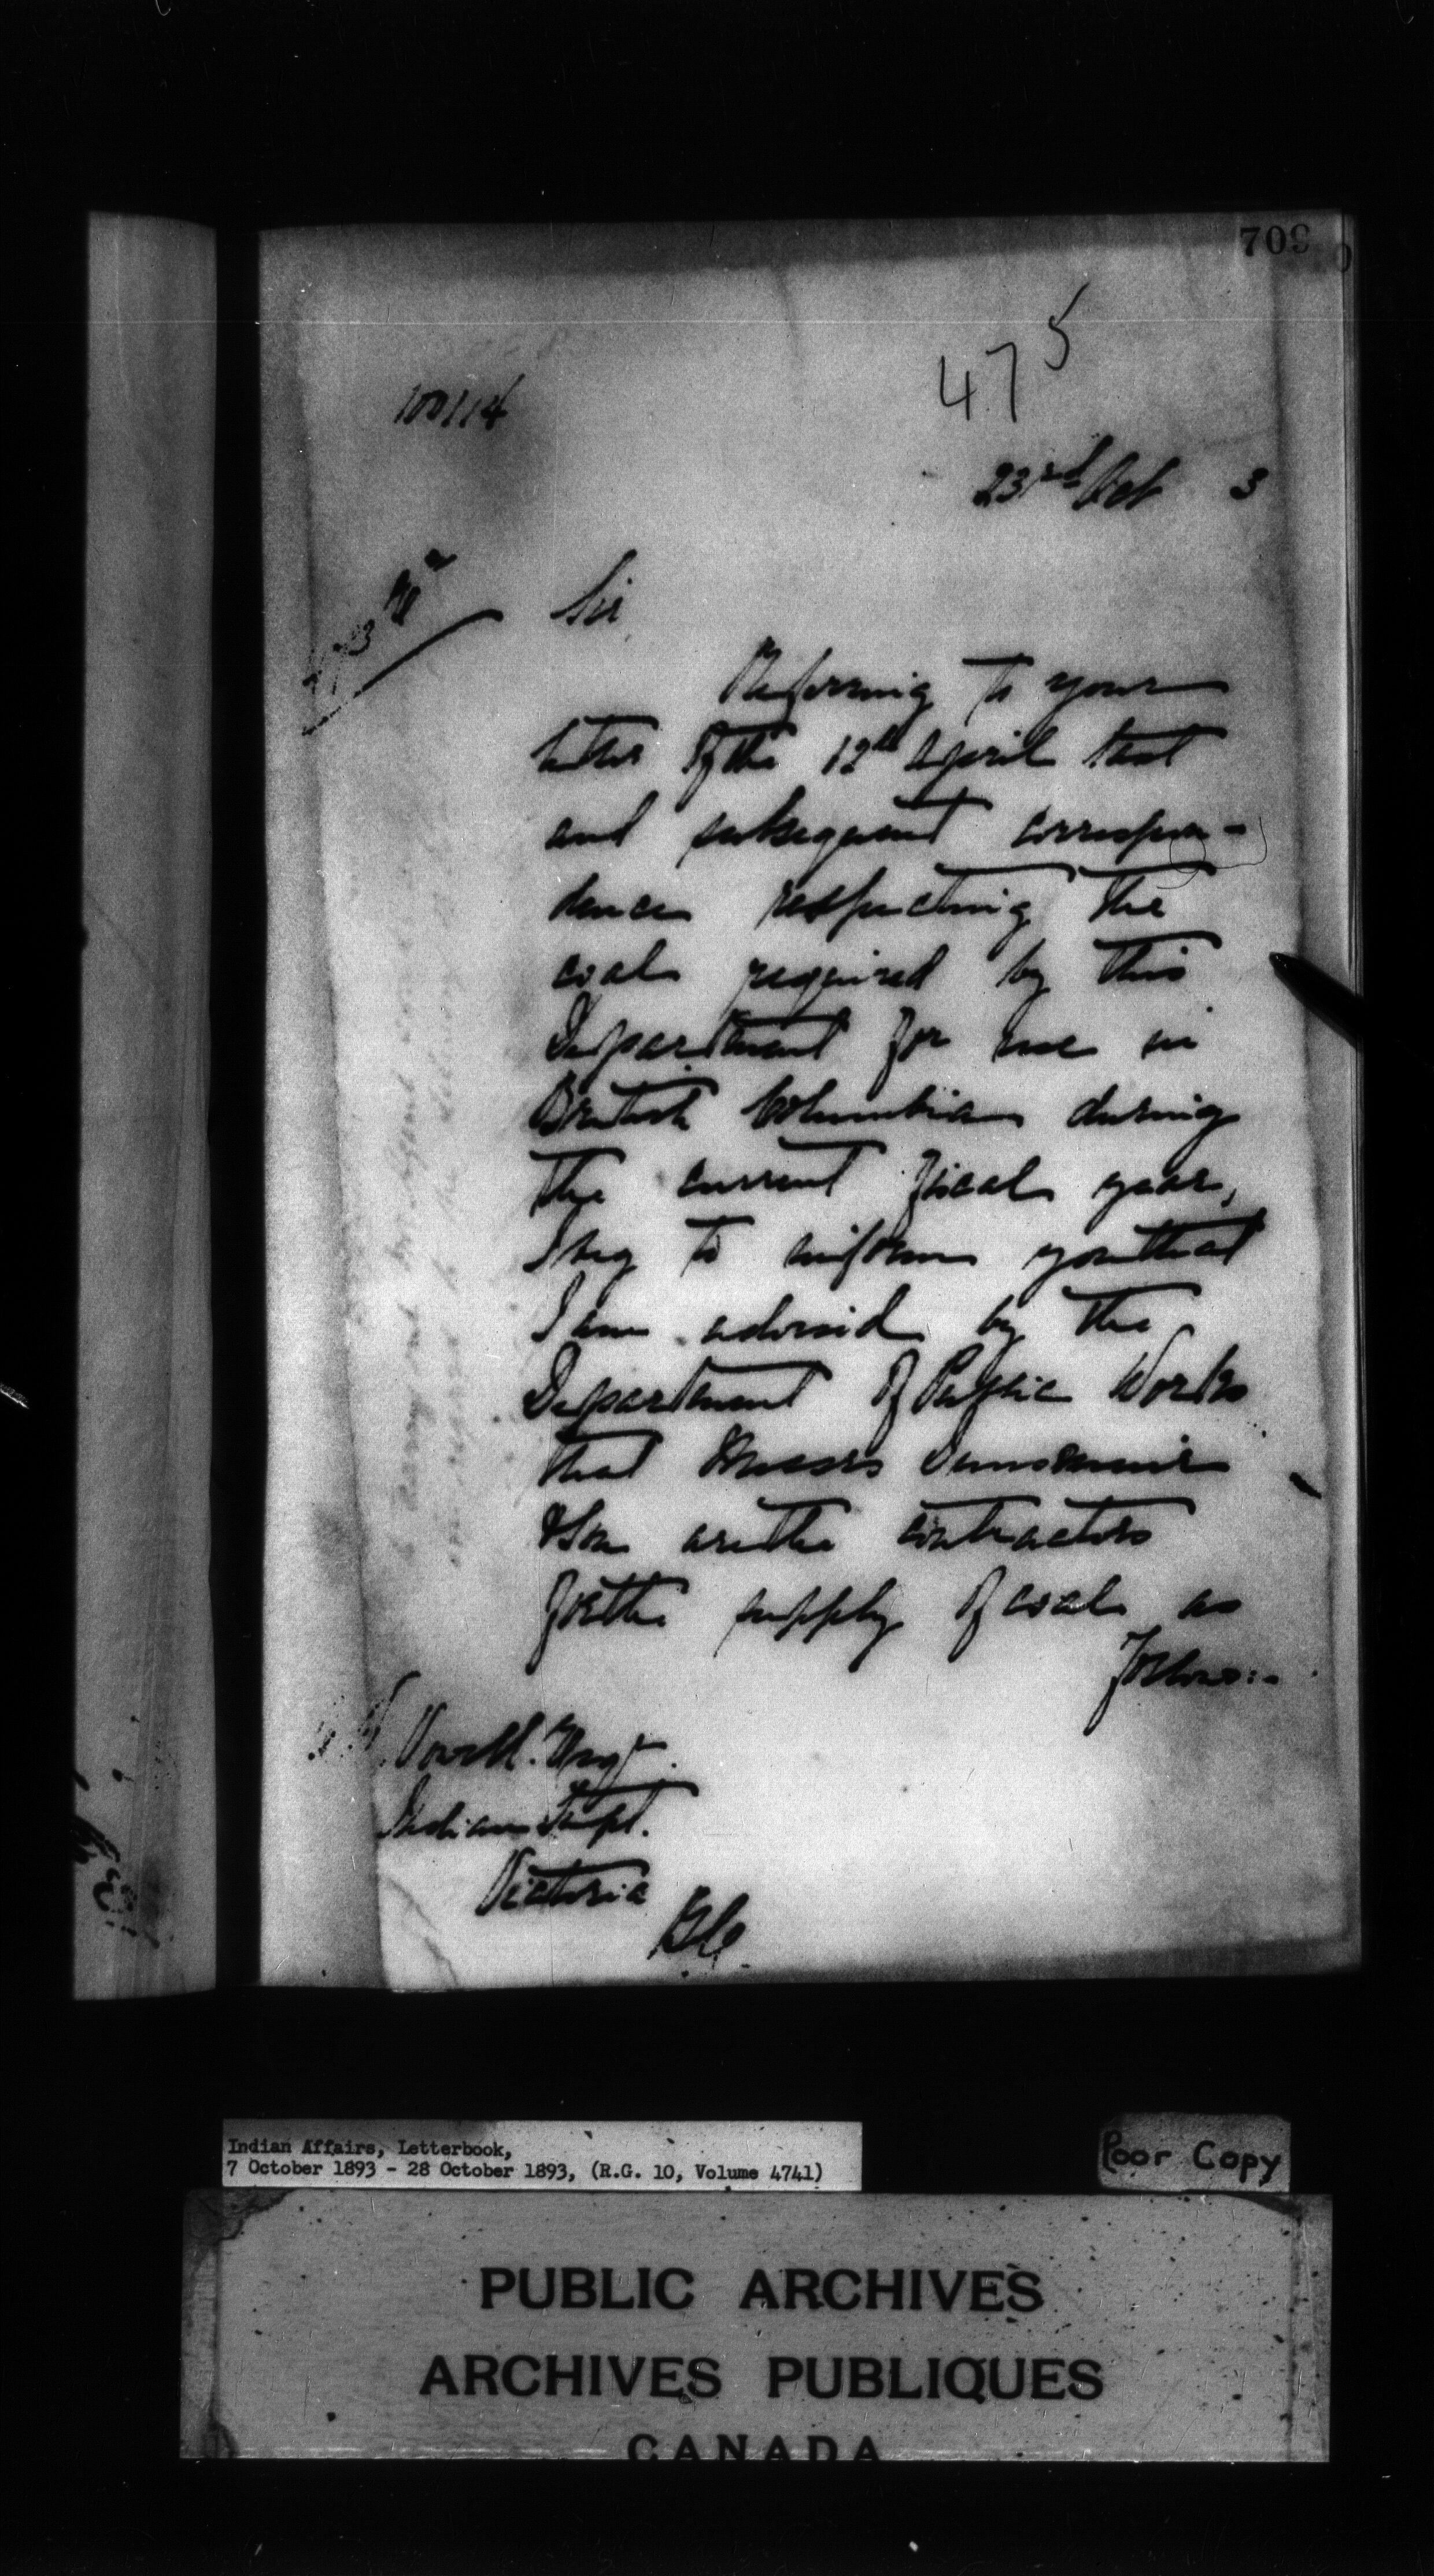 709
475
100114
23rd Oct 3
Sir
Referring to your
letter of the 12th April last
and subsequent correspon-
dence respecting the
coal required by this
Department for use in
British Columbia during
the current fiscal year,
I beg to inform you that
I am advised by the
Department of Public Works
that Messrs Dunsmuir
& Son are the contractors
for the supply of coal as
follows:-
Vowell. Esqr.
Indian Supt.
Victoria
BC
Indian Affairs, Letterbook,
7 October 1893 - 28 October 1893, (R.G. 10, Volume 4741)
Poor Copy
PUBLIC ARCHIVES
ARCHIVES PUBLIQUES
CANADA